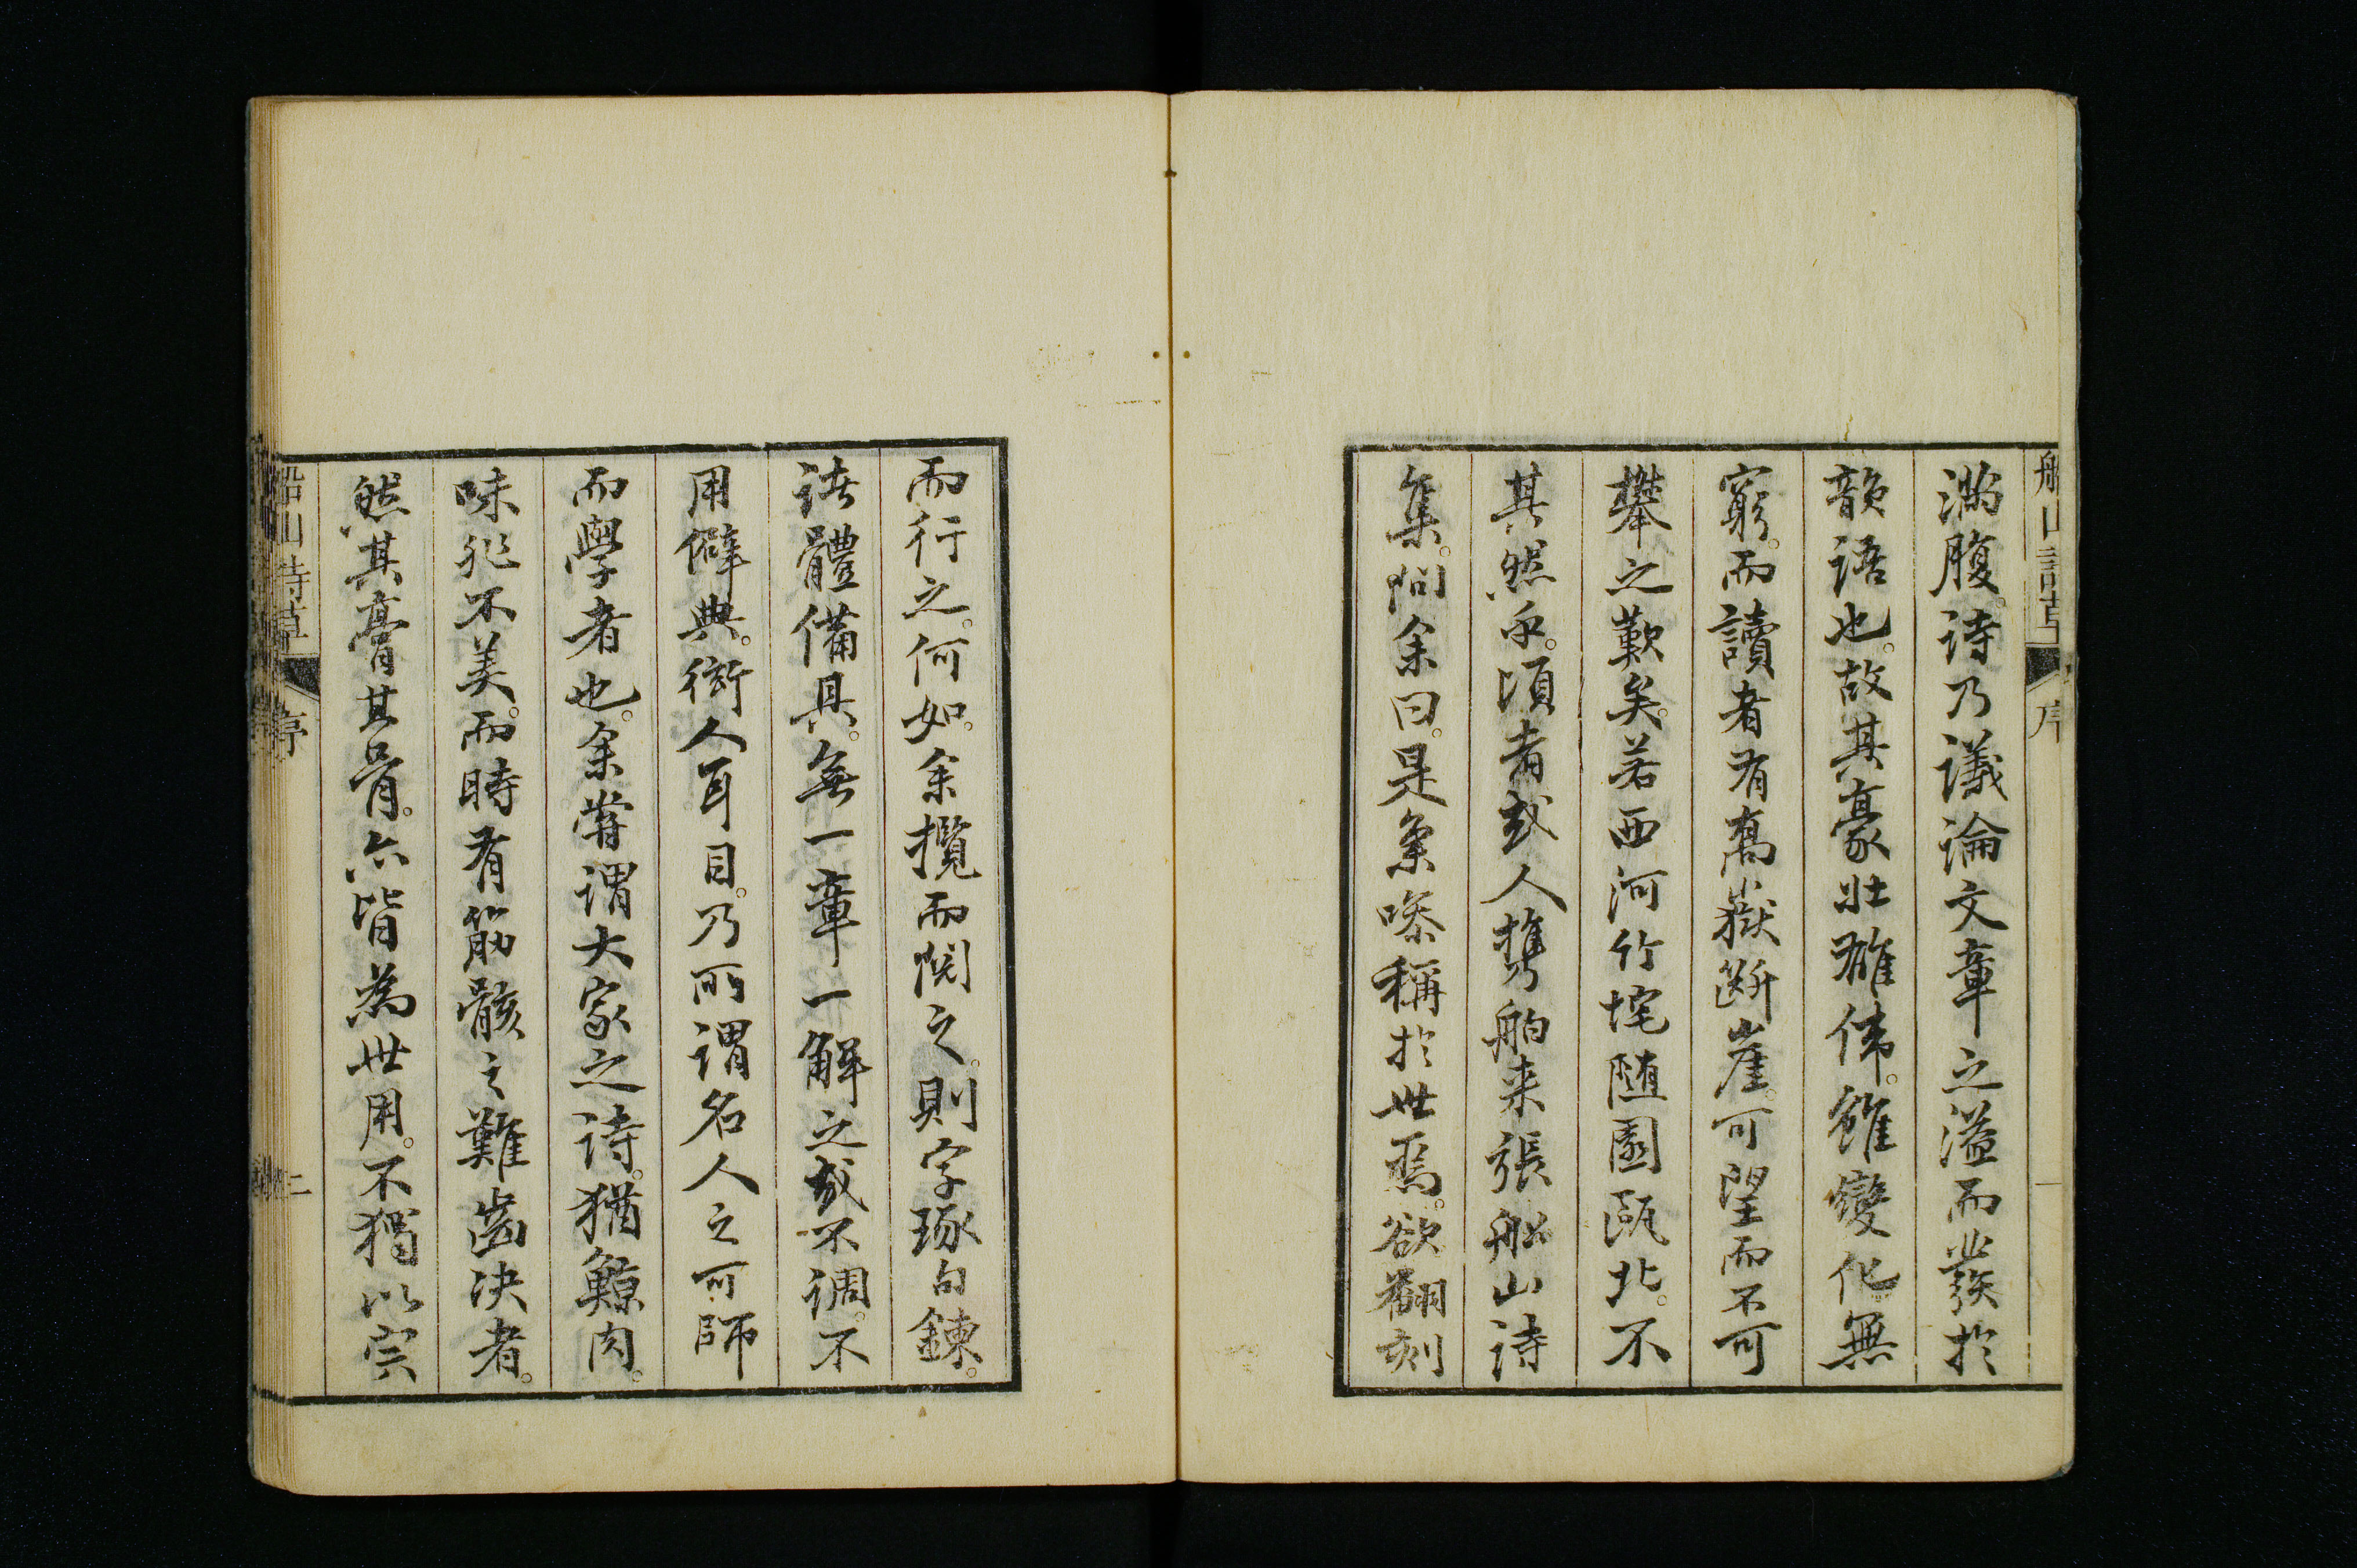 船山詩草 序 一
滿腹。詩乃議論文章之溢而發於
韻語也。故其豪壯雄偉。雖變化無
窮。而讀者有高嶽斷崖。可望而不可
攀之歎矣。若西河竹垞随園甌北。不
其然乎。頃者或人携舶来張船山詩
集。問余曰。是集噪稱於世焉。欲翻刻
而行之。何如。余攬而閲之。則字琢句鍊。
諸體備具。無一章一解之或不調。不
用僻典。衒人耳目。乃所謂名人之可師
而學者也。余嘗謂大家之詩。猶鯨肉。
味非不美。而時有筋骸之難齒决者。
然其膏其骨。亦皆為世用。不獨以宗
船山詩草 序 二